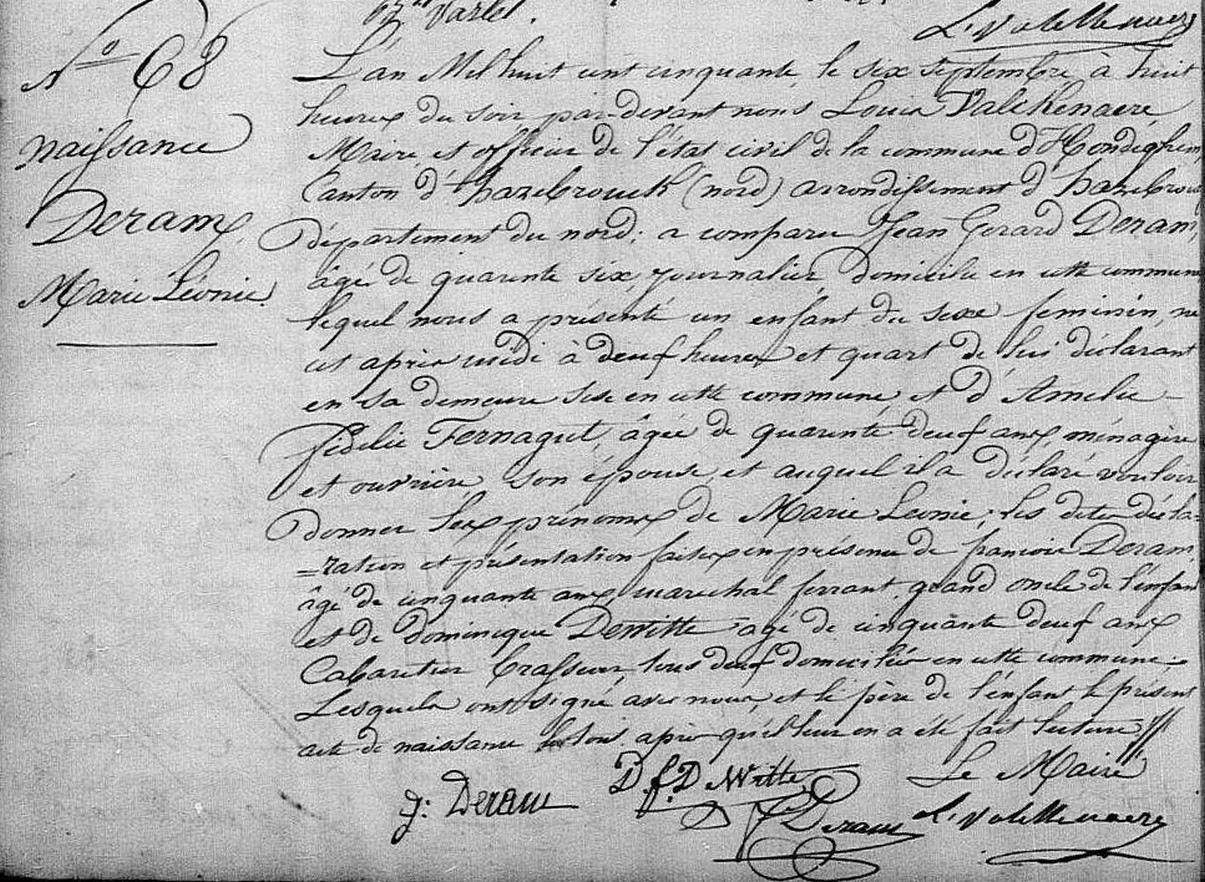 Varlet.
L. Valckenaere
N° 68
naissance
Deram,
Marie Léonie.
L'an Mil huit cent cinquante, le six septembre, à huit
heures du soir, par-devant nous Louis Valckenaere
Maire, et officier de l'état civil de la commune d'Hondeghem,
Canton d'hazebrouck (nord) arrondissement d'hazebrouck
département du nord; a comparu Jean Gerard Deram,
âgé de quarante six, journalier, domicilié en cette commune
lequel nous a présenté un enfant du sexe feminin, né
cet après midi à deux heures et quart de lui déclarant
en sa demeure sise en cette commune et d'Amelie
Fidelie Fernagut, âgée de quarante deux ans, ménagère
et ouvrière son épouse, et auquel il a déclaré vouloir
donner les prénoms de Marie Léonie; les dites décla=
=ration et présentation faites en présence de françois Deram,
âgé de cinquante ans, marechal ferrant, grand oncle de l'enfant
et de dominique Dewitte agé de cinquante deux ans
Cabaretier brasseur, tous deux domiciliés en cette commune.
Lesquels ont signé avec nous, et le père de l'enfant le présent
acte de naissance après qu'il leur en a été fait lecture
Le Maire
g: Deram
D. f. DeWitte
f Deram
L. Valckenaere